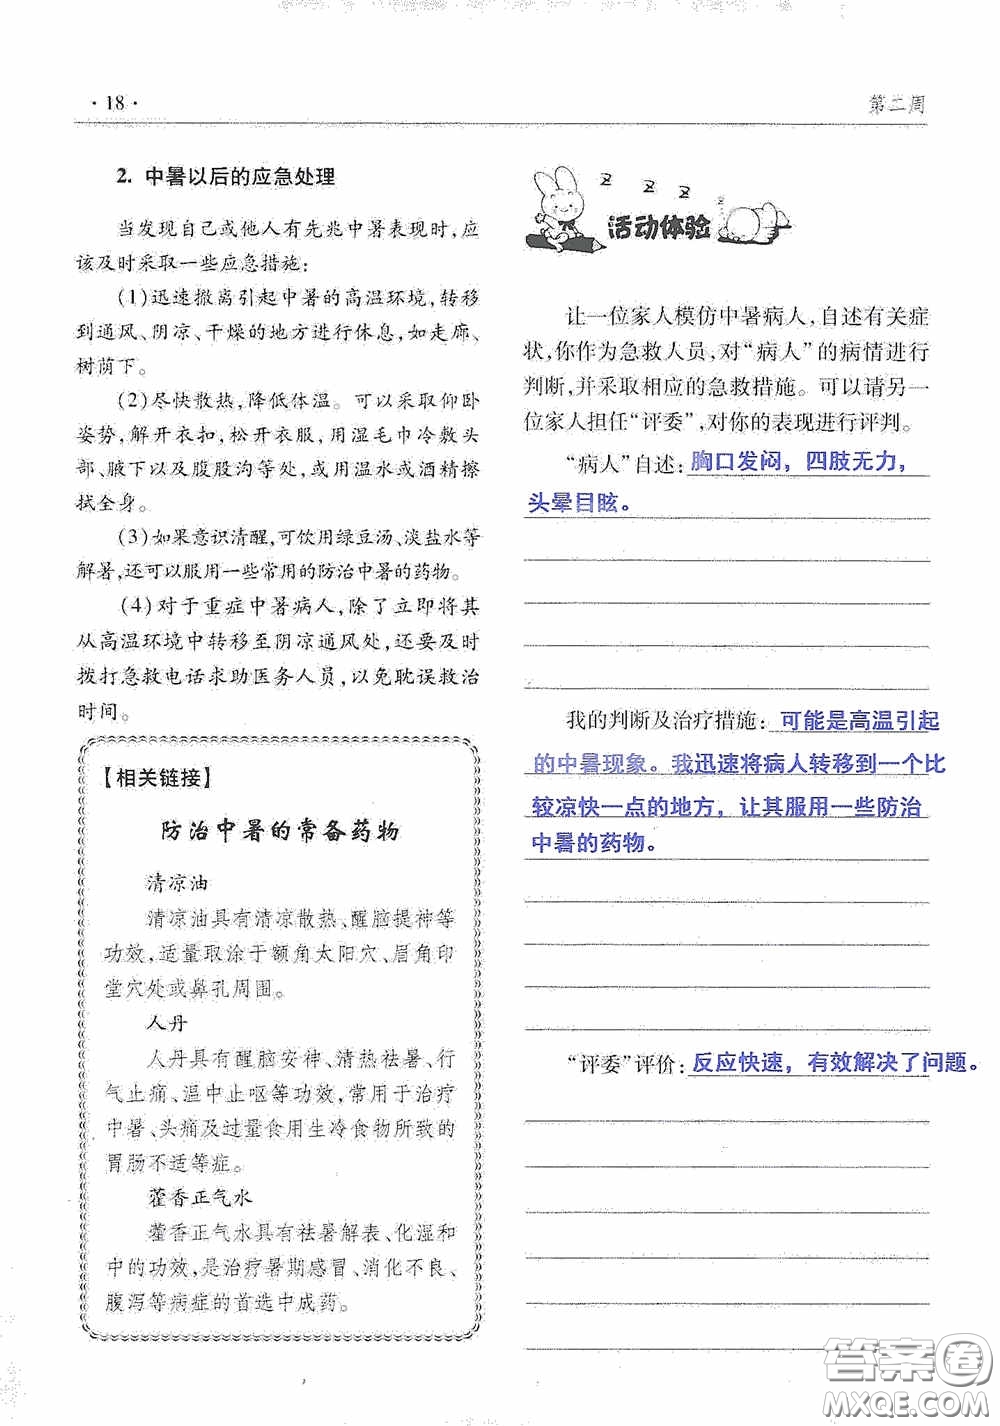 ·18·
第二周
2. 中暑以后的应急处理
当发现自己或他人有先兆中暑表现时,应
该及时采取一些应急措施:
(1)迅速撤离引起中暑的高温环境,转移
到通风、阴凉、干燥的地方进行休息,如走廊、
树荫下。
(2)尽快散热,降低体温。可以采取仰卧
姿势,解开衣扣,松开衣服,用湿毛巾冷敷头
部、腋下以及腹股沟等处,或用温水或酒精擦
拭全身。
(3)如果意识清醒,可饮用绿豆汤、淡盐水等
解暑,还可以服用一些常用的防治中暑的药物。
(4)对于重症中暑病人,除了立即将其
从高温环境中转移至阴凉通风处,还要及时
拨打急救电话求助医务人员,以免耽误救治
时间。
【相关链接】
防治中暑的常备药物
清凉油
清凉油具有清凉散热、醒脑提神等
功效,适量取涂于额角太阳穴、眉角印
堂穴处或鼻孔周围。
人丹
人丹具有醒脑安神、清热祛暑、行
气止痛、温中止呕等功效,可用于治疗
中暑、头痛及过量食用生冷食物所致的
胃肠不适等症。
藿香正气水
藿香正气水具有祛暑解表、化湿和
中的功效,是治疗暑期感冒、消化不良、
腹泻等病症的首选中成药。
z z z z
活动体验
让一位家人模仿中暑病人,自述有关症
状,你作为急救人员,对“病人”的病情进行
判断,并采取相应的急救措施。可以请另一
位家人担任“评委”,对你的表现进行评判。
“病人”自述:胸口发闷，四肢无力，
头晕目眩。
我的判断及治疗措施:可能是高温引起
的中暑现象。我迅速将病人转移到一个比
较凉快一点的地方，让其服用一些防治
中暑的药物。
“评委”评价:反应快速，有效解决了问题。
答案圈
MXQE.COM